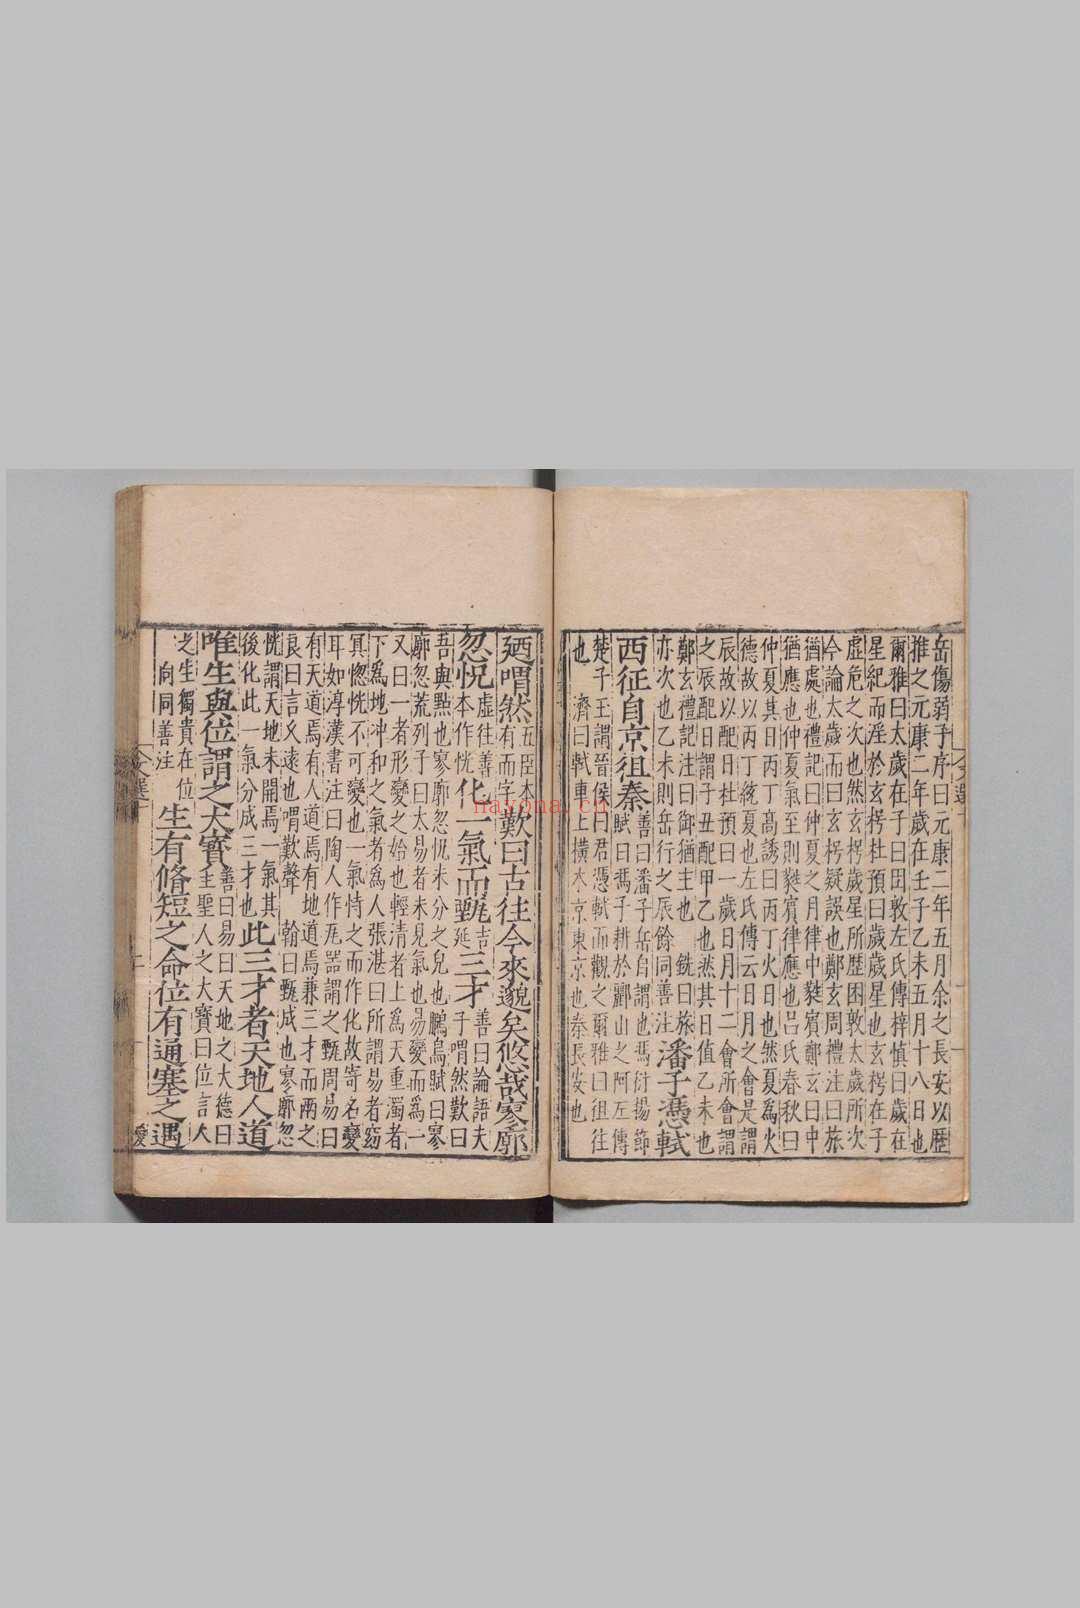 岳傷弱子序曰元康二年五月余之長安以歷
推之元康二年歲在壬子乙未五月十八日也
爾雅曰太歲在子曰困敦左氏傳梓慎曰歲在
星紀而淫於玄枵杜預曰歲歲星也玄枵在子
虛危之次也然玄枵歲星所歷困敦太歲所次
今論太歲而曰玄枵疑誤也鄭玄周禮注曰旅
猶處也禮記曰仲夏之月律中蕤賓鄭玄曰中
猶應也仲夏氣至則蕤賓律應也呂氏春秋曰
仲夏其日丙丁高誘曰丙丁火日也然夏爲火
德故以丙丁統夏也左氏傳云日月之會是謂
辰故以配日杜預曰一歲日月十二會所會謂
之辰配日謂子丑配甲乙也然其日值乙未也
鄭玄禮記注曰御猶主也 銑曰旅
亦次也乙未則岳行之辰餘同善注
潘子憑軾
西征自京徂秦
善曰潘子岳自謂也馮衍揚節
賦曰馮子耕於酈山之阿左傳
楚子玉謂晉侯曰君憑軾而觀之爾雅曰徂往
也 濟曰軾車上橫木京東京也秦長安也
廼喟然
五臣本
有而字
歎曰古往今來邈矣悠哉寥廓
忽怳
虛往善
本作恍
化一氣而甄
吉
延
三才
善曰論語夫
子喟然歎曰
吾與點也寥廓忽怳未分之皃也鵩鳥賦曰寥
廓忽荒列子曰太易者未見氣也易變而爲一
又曰一者形變之始也輕清者上爲天重濁者
下爲地沖和之氣者爲人張湛曰所謂易者窈
冥惚恍不可變也一氣恃之而作化故寄名變
耳如淳漢書注曰陶人作瓦器謂之甄周易曰
有天道焉有人道焉有地道焉兼三才而兩之
良曰言久遠也喟歎聲 翰曰甄成也寥廓忽
恍謂天地未開焉一氣其
後化此一氣分成三才也
此三才者天地人道
唯生與位謂之大寶
善曰易曰天地之大德曰
生聖人之大寶曰位言人
之生獨貴在位
向同善注
生有脩短之命位有通塞之遇
nayona.cn